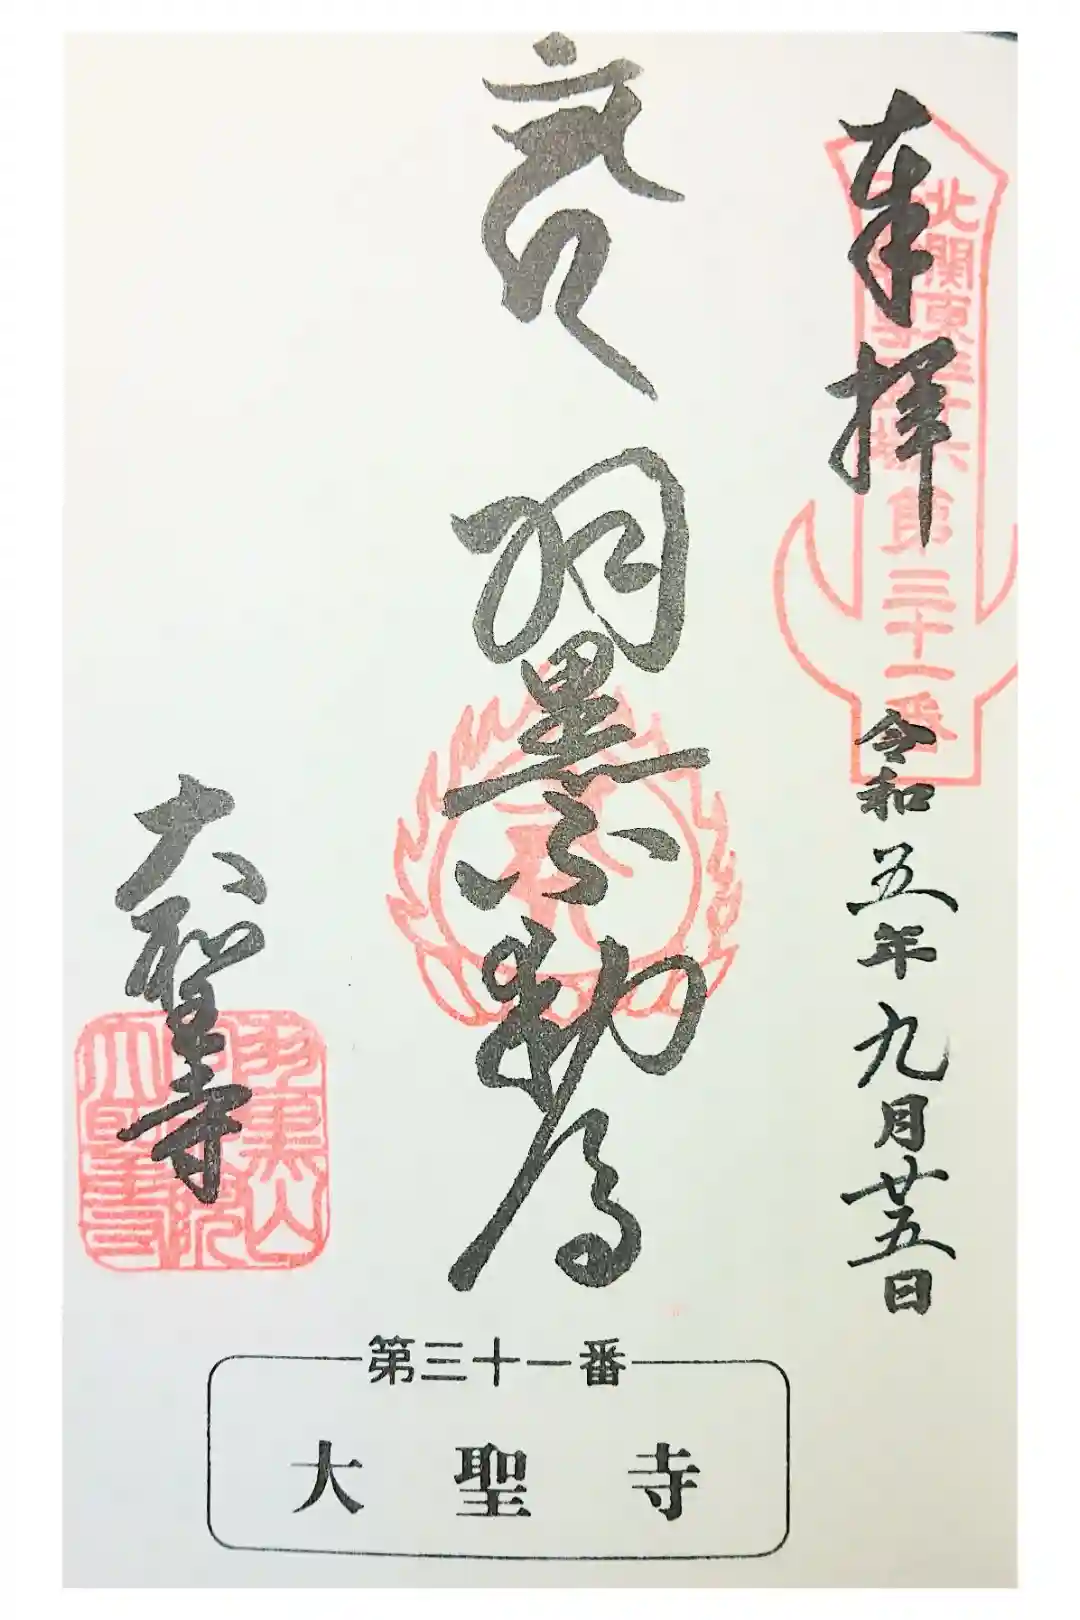 奉拝
北関東三十六
第三十一番
令和五年九月廿五日
羽黒不動尊
大聖寺
羽黒山
大聖寺
第三十一番
大聖寺